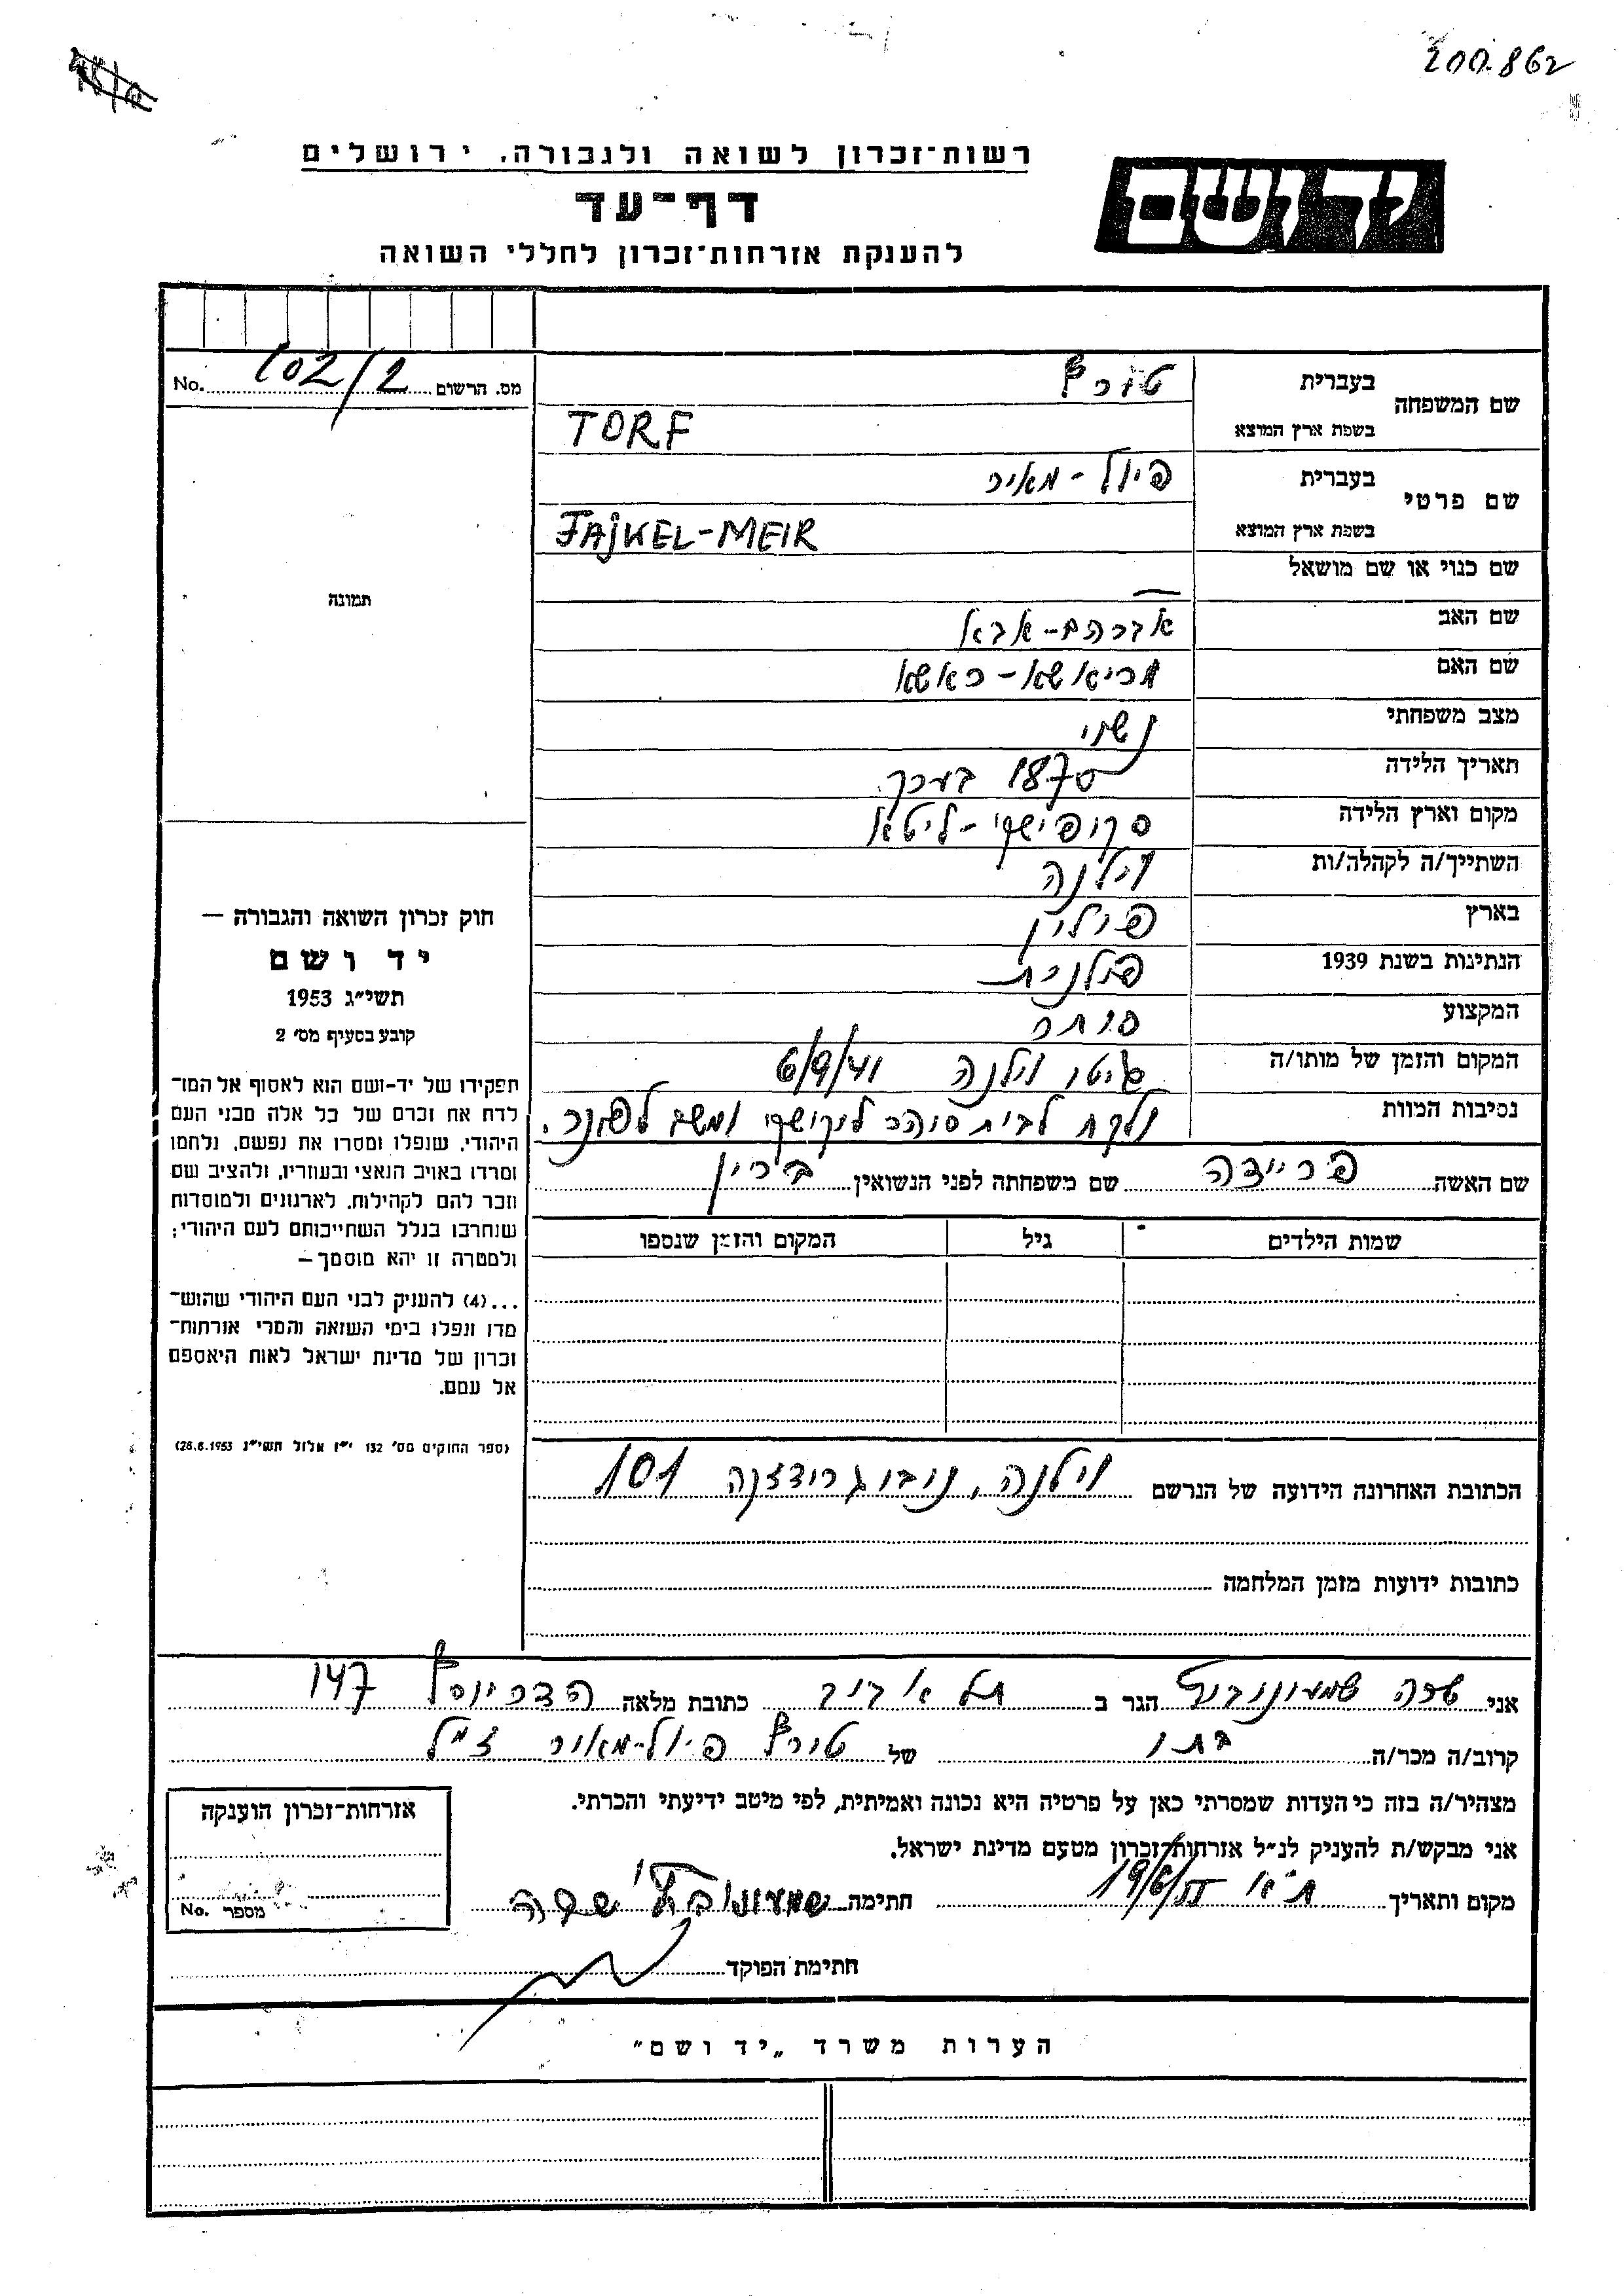 200.862
יד ושם
רשות־זכרון לשואה ולגבורה, ירושלים
דף־עד
להענקת אזרחות־זכרון לחללי השואה
מס. הרשום 102/2 No.
תמונה
שם המשפחה בעברית טורף
בשפת ארץ המוצא TORF
שם פרטי בעברית פיול - מאיר
בשפת ארץ המוצא FAJKEL-MEIR
שם כנוי או שם מושאל —
שם האב אברהם-אבא
שם האם חריאשא - ראשא
מצב משפחתי נשוי
תאריך הלידה 1870 בערך
מקום וארץ הלידה סקופישקי - ליטא
השתייך/ה לקהלה/ות וילנה
בארץ פולין
הנתינות בשנת 1939 פולנית
המקצוע סוחר
המקום והזמן של מותו/ה גיטו וילנה 6/9/41
נסיבות המוות נלקח לבית סוהר לוקישקי ומשם לפונר.
שם האשה פריידה שם משפחתה לפני הנשואין ברין
שמות הילדים גיל המקום והזמן שנספו
חוק זכרון השואה והגבורה —
יד ושם
תשי״ג 1953
קובע בסעיף מס׳ 2
תפקידו של יד-ושם הוא לאסוף אל המו־
לדת את זכרם של כל אלה מבני העם
היהודי, שנפלו ומסרו את נפשם, נלחמו
ומרדו באויב הנאצי ובעוזריו, ולהציב שם
וזכר להם לקהילות, לארגונים ולמוסדות
שנחרבו בגלל השתייכותם לעם היהודי;
ולמטרה זו יהא מוסמך —
...(4) להעניק לבני העם היהודי שהוש־
מדו ונפלו בימי השואה והמרי אזרחות־
זכרון של מדינת ישראל לאות היאספם
אל עמם.
(ספר החוקים מס׳ 132 י״ז אלול תשי״ג 28.8.1953)
הכתובת האחרונה הידועה של הנרשם וילנה, נובוגרודזקה 101
כתובות ידועות מזמן המלחמה
אני שרה שמעונוביץ הגר ב תל אביב כתובת מלאה הדביונסקי 147
קרוב/ה מכר/ה בתו של טורף פיול-מאיר ז״ל
מצהיר/ה בזה כי העדות שמסרתי כאן על פרטיה היא נכונה ואמיתית, לפי מיטב ידיעתי והכרתי.
אני מבקש/ת להעניק לנ״ל אזרחות־זכרון מטעם מדינת ישראל.
מקום ותאריך ת״א חתימה שמעונוביץ שרה
חתימת הפוקד
אזרחות־זכרון הוענקה
מספר No.
הערות משרד „יד ושם״